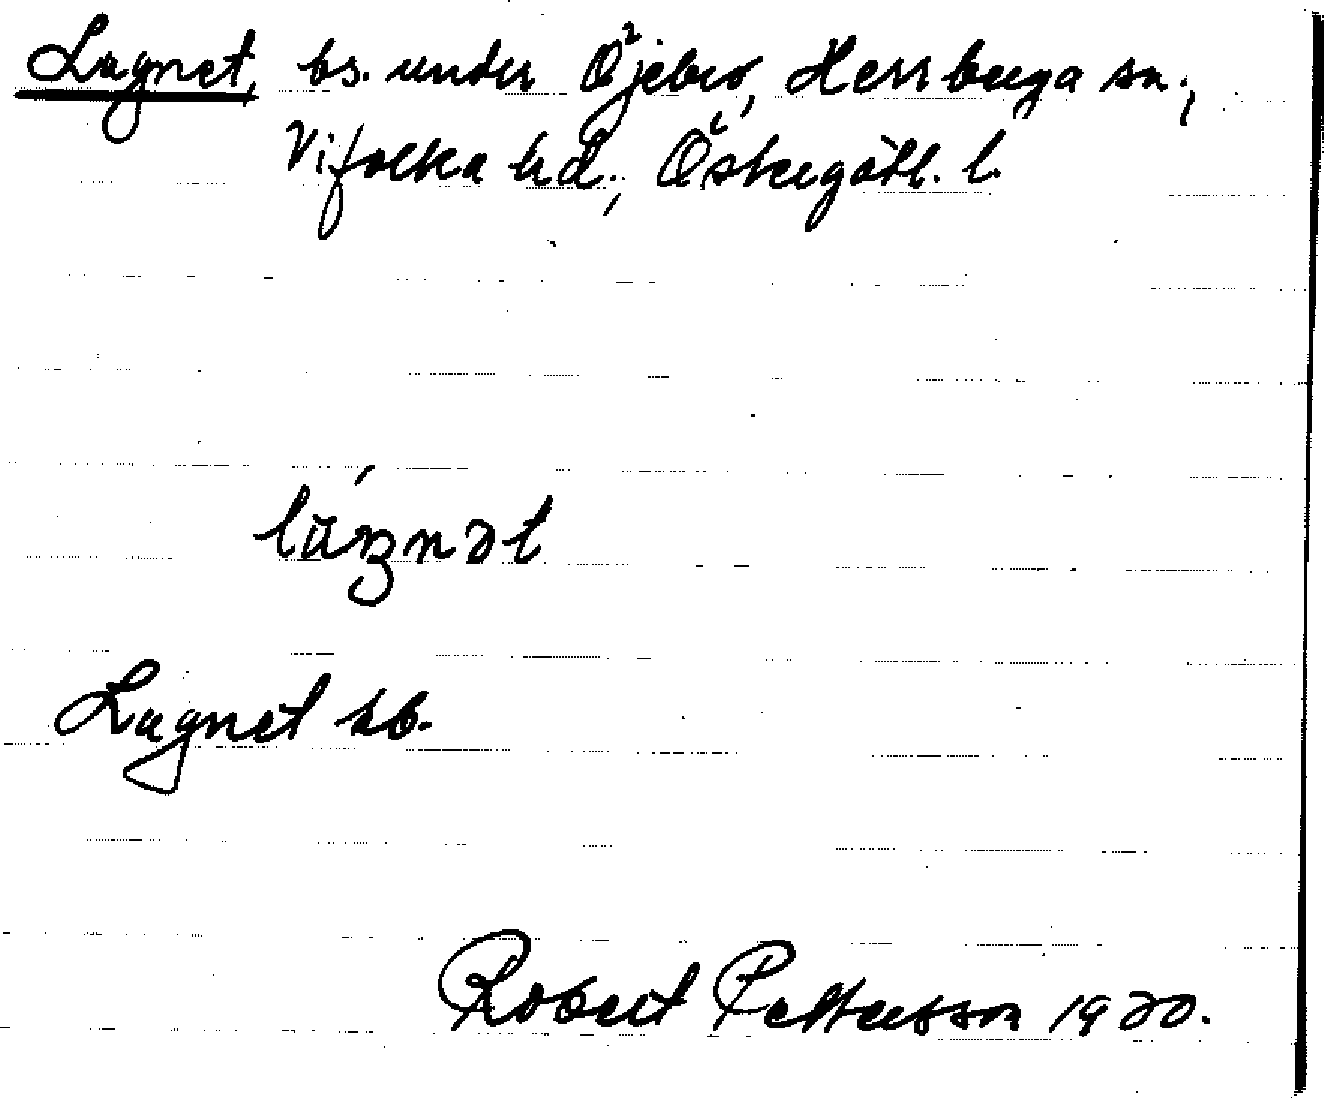 Lugnet, bs. under Öjebro, Herrberga sn.,
Vifolka hd., Östergötl. l.
Lugnet kb.
Robert Pettersson 1920.